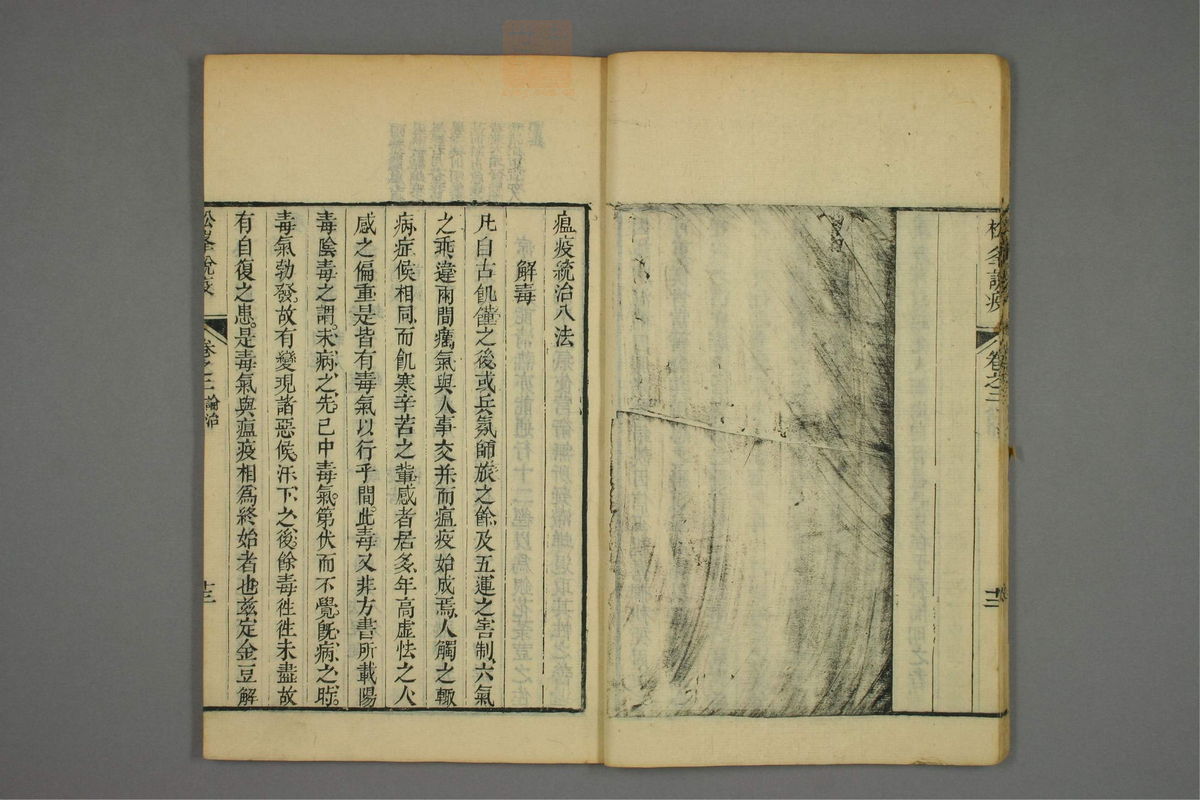 松峯說疫
卷之三
十二
瘟疫統治八法
解毒
凡自古飢饉之後、或兵氛師旅之餘、及五運之害制、六氣
之乖違、兩間癘氣與人事交并、而瘟疫始成焉、人觸之輙
病、症候相同、而飢寒辛苦之輩感者居多、年高虛怯之人
感之偏重、是皆有毒氣以行乎間、此毒又非方書所載陽
毒陰毒之謂、未病之先、已中毒氣、第伏而不覺、旣病之時、
毒氣勃發、故有變現諸惡候、汗下之後、餘毒徃徃未盡、故
有自復之患、是毒氣與瘟疫相爲終始者也、茲定金豆解
松峯說疫
卷之三
論治
十三